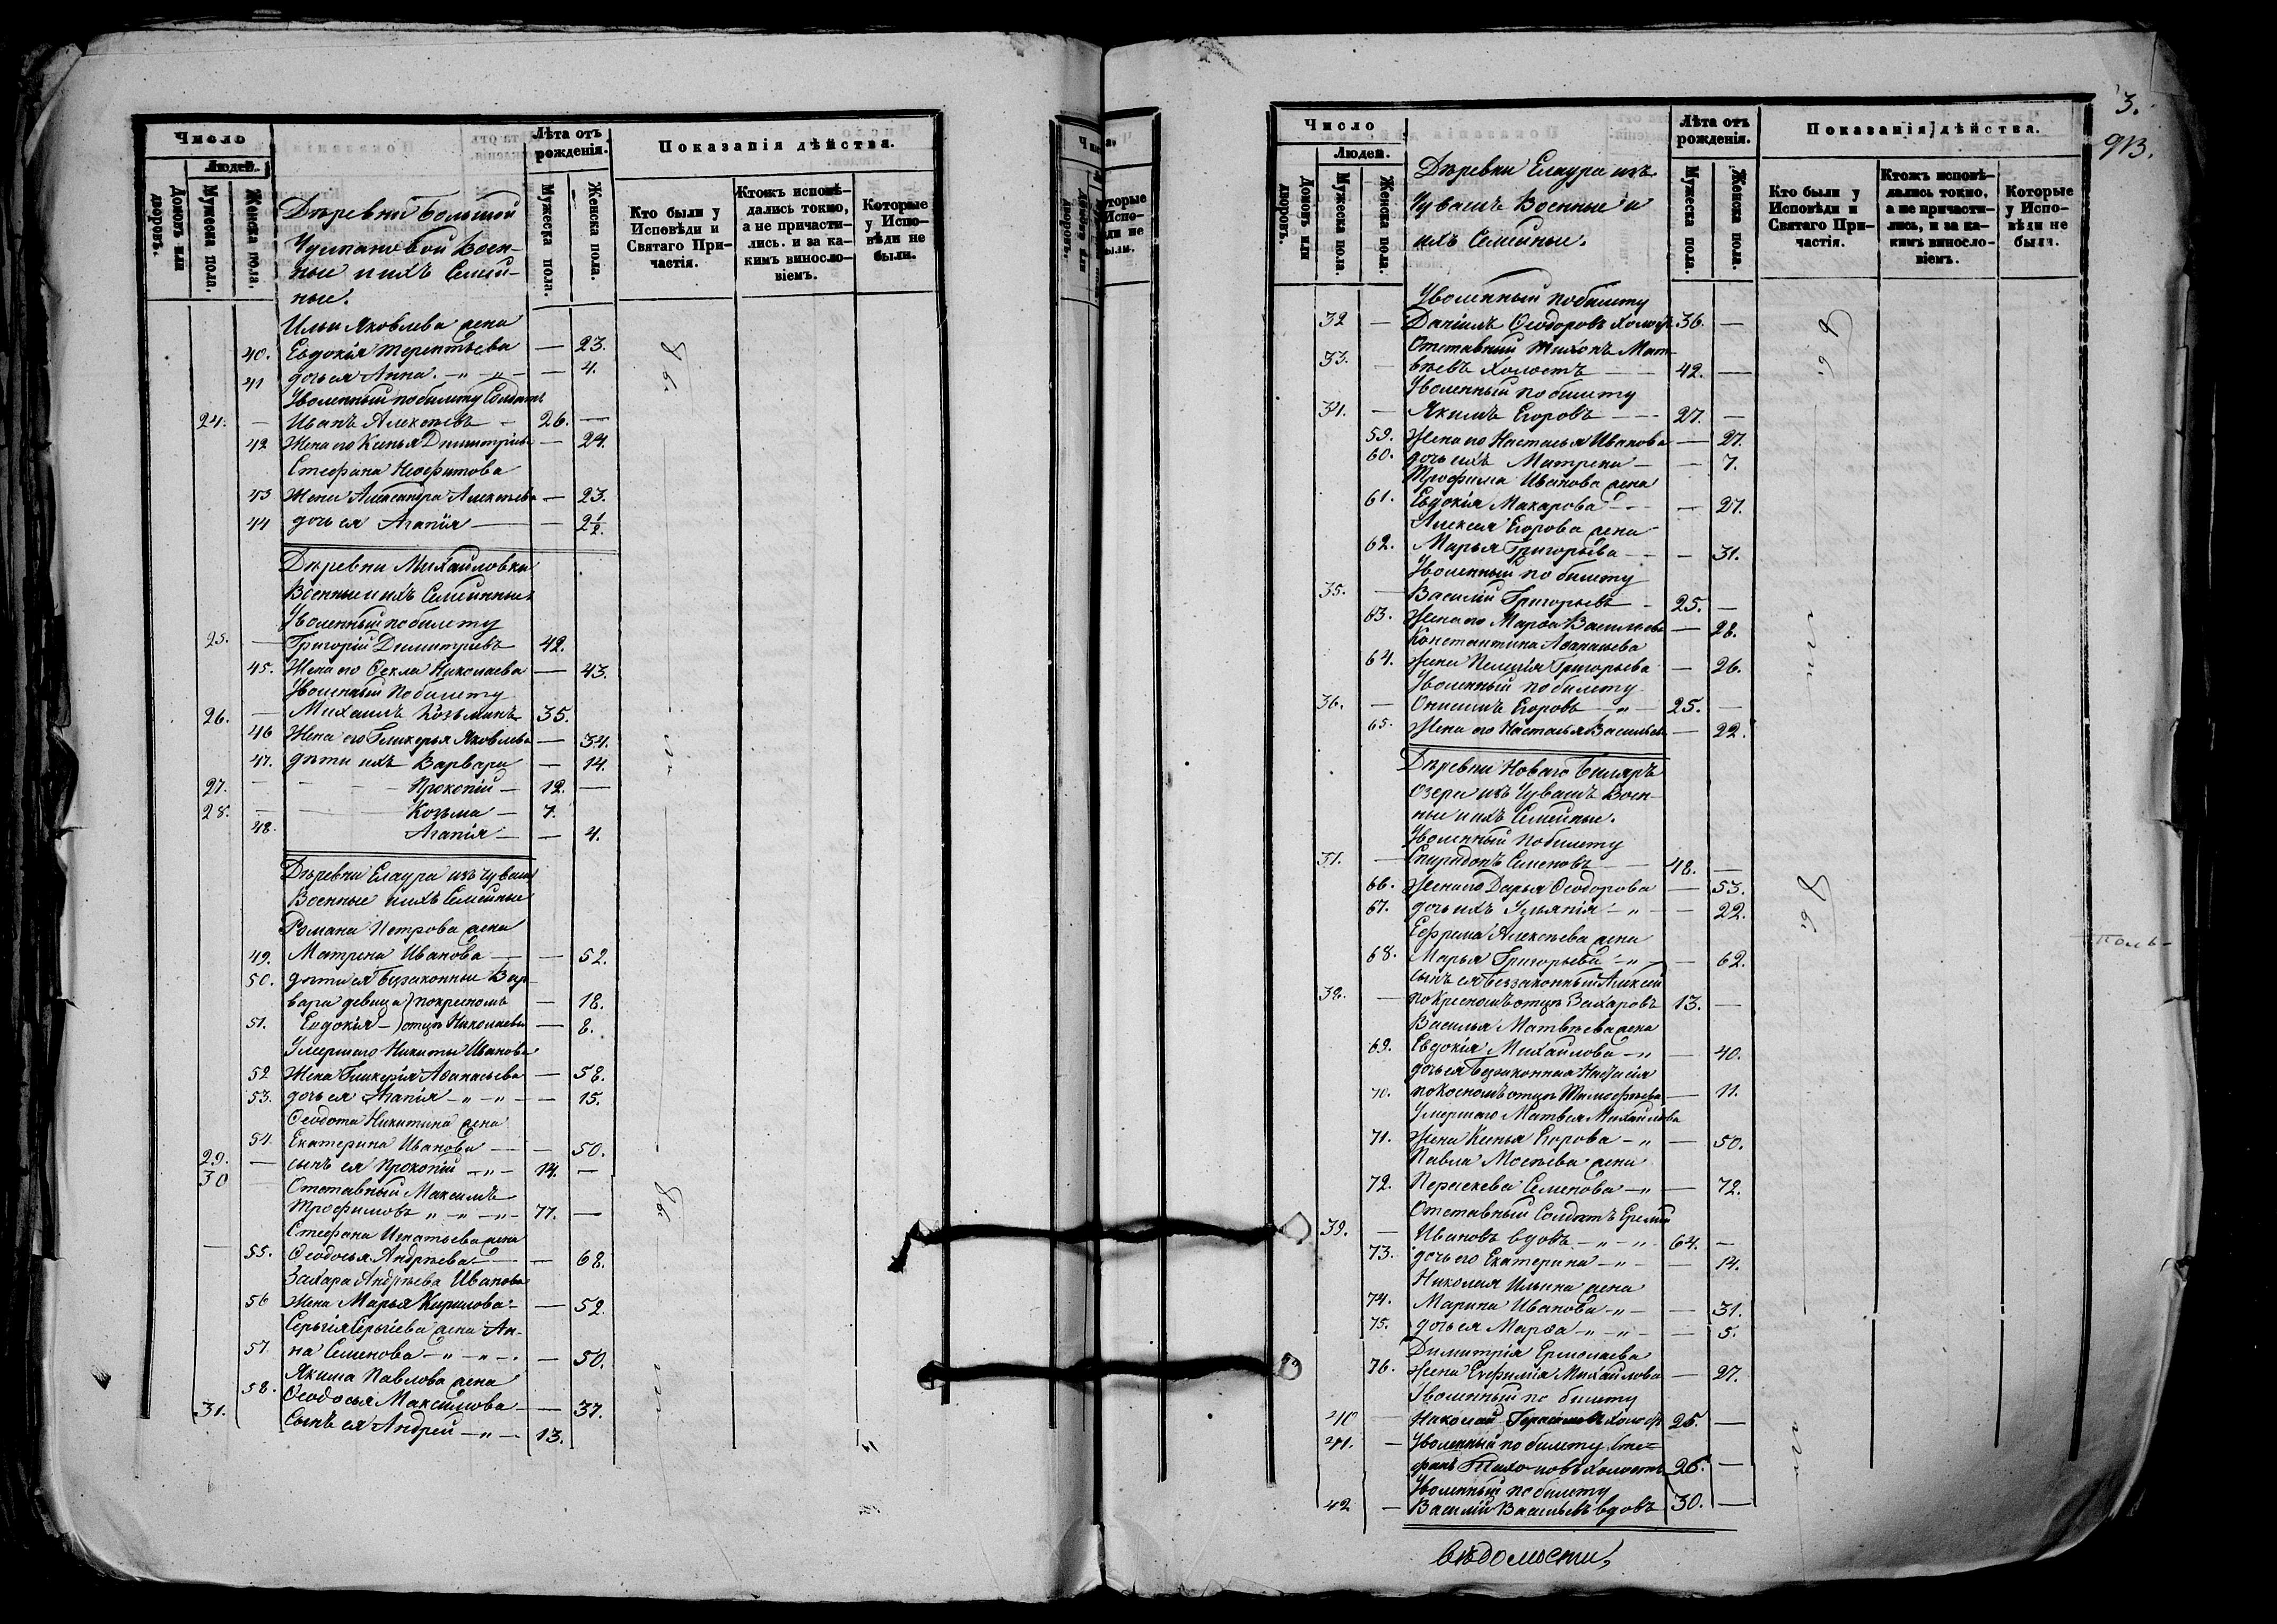 Число
Людей.
Домовъ или дворовъ.
Мужеска пола.
Женска пола.
Деревни Большой
Чуипановой Воен-
ные и ихъ Семей-
ные.
Лѣта отъ рожденія.
Мужеска пола.
Женска пола.
Показанія дѣйства.
Кто были у Исповѣди и Святаго При-частія.
Ктожъ исповѣ-дались токмо, а не причасти-лись. и за ка-кимъ виносло-віемъ.
Которые у Испо-вѣди не были.
Ильи Яковлева жена
40. Евдокія Терентьева — 23.
41 дочь ея Анна. -„ -„ — 4.
Уволенный по билету Солдатъ
24. — Иванъ Алексѣевъ - 26. —
42 Жена его Ксенья Димитріева — 24.
Стефана Неофитова
43 Жена Александра Алексѣева — 23.
44 дочь ея Агапія — — 2½.
Деревни Михайловки
Военные и ихъ Семейные.
Уволенный по билету
25. — Григорій Димитріевъ 42.
45. Жена его Ѳекла Николаева — 43.
Уволенный по билету
26. — Михаилъ Козьминъ 35.
46 Жена его Гликерья Яковлева — 34.
47. дѣти ихъ Варвара — 14.
27. — Прокопій — 12. —
28. — Козьма — 7.
48. Агапія — — 4.
Деревни Елаура изъ чувашъ
Военные и ихъ Семейные
Романа Петрова жена
49. Матрена Иванова — — 52.
50. дѣти ея беззаконные Вар-
вара девица) по кресному — 18.
51. Евдокія -) отцу Николаевы — 8.
Умершаго Никиты Иванова
52 Жена Гликерія Аѳанасьева — 58.
53. дочь ея Агапія -„ -„ — 15.
Ѳеодота Никитина жена
54 Екатерина Иванова — — 50.
29. — сынъ ея Прокопій -„ - 14. —
30 Отставный Максимъ
Трофимовъ „ -„ -„ - 77. —
Стефана Игнатьева жена
55. Ѳеодосья Андрѣева — — 68.
Захара Андрѣева Иванова
56 Жена Марья Кирилова - — 52.
Сергія Сергіева жена Ан-
57 на Семенова -„ -„ -. — 50.
Якима Павлова жена
58. Ѳеодосья Максимова — 37.
31. Сынъ ея Андрей -„ - 13.
3.
913.
Число
Людей.
Домовъ или дворовъ.
Мужеска пола.
Женска пола.
Деревни Елаура изъ
Чувашъ Военные и
ихъ Семейные.
Лѣта отъ рожденія.
Мужеска пола.
Женска пола.
Показанія дѣйства.
Кто были у Исповѣди и Святаго При-частія.
Ктожъ исповѣ-дались токмо, а не причасти-лись, и за ка-кимъ виносло-віемъ.
Которые у Испо-вѣди не были.
Уволенный по билету
32 — Даніилъ Ѳеодоровъ холост 36. —
Отставный Тихонъ Мат-
33. — вѣевъ холостъ — 42. —
Уволенный по билету
34. — Якимъ Егоровъ — 27. —
59. Жена его Настасья Иванова — 27.
60. дочь ихъ Матрена — — 7.
Трофима Иванова жена
61. Евдокія Макарова — — 27.
Алексея Егорова жена
62. Марья Григорьева — — 31.
Уволенный по билету
35. — Василій Григорьевъ - 25. —
63. Жена его Марѳа Васильева — 28.
Константина Аѳанасьева
64. Жена Пелагія Григорьева — 26.
Уволенный по билету
36. — Онисимъ Егоровъ -„ 25. —
65. Жена его Настасья Васильева — 22.
Деревни Новаго Биляръ
Озера изъ Чувашъ Воен-
ные и ихъ Семейные.
Уволенный по билету
37. — Спиридонъ Семеновъ — 48. —
66. Жена его Дарья Ѳеодорова — 53.
67. дочь ихъ Ульянія -„ — 22.
Ефрема Алексѣева жена
68. Марья Григорьева -„ — 62.
сынъ ея беззаконный Алексій
38. — по кресному отцу Захаровъ 13. —
Василья Матвѣева жена
69. Евдокія Михайлова -„ — 40.
дочь ея беззаконная Настасія
70. по кресному отцу Тимоѳеева — 11.
Умершаго Матвея Михайлова
71. Жена Ксенья Егорова -„ — 50.
Павла Мосѣева жена
72. Пераскева Семенова -„ — 72.
Отставный Солдатъ Еремій
39. — Ивановъ вдовъ -„ -„ 64. —
73. дочь его Екатерина -„ — 14.
Николая Ильина жена
74. Марина Иванова -„ — 31.
75. дочь ея Марѳа -„ -„ — 5.
Димитрія Ермолаева
76. Жена Евфимія Михайлова — 27.
Уволенный по билету
40 — Николай Герасимовъ холост 25. —
41. — Уволенный по билету Сте=
фанъ Тихоновъ холостъ 26. —
Уволенный по билету
42 — Василій Васильевъ вдовъ 30. —
вѣдомости,